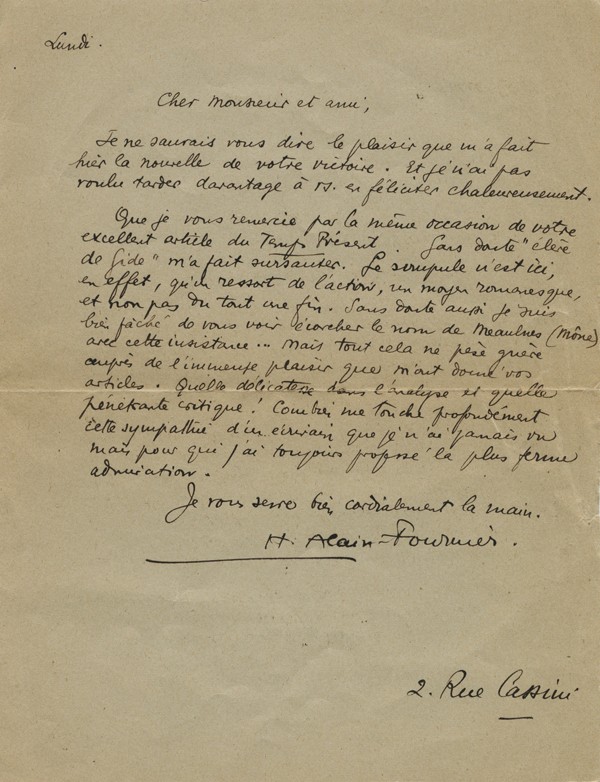 Lundi.
Cher monsieur et ami,
Je ne saurais vous dire le plaisir que m'a fait
hier la nouvelle de votre victoire. Et je n'ai pas
voulu tarder davantage à vs. en féliciter chaleureusement.
Que je vous remercie par la même occasion de votre
excellent article du Temps Présent. Sans doute "élève
de Gide" m'a fait sursauter. Le scrupule n'est ici,
en effet, qu'un ressort de l'action, un moyen romanesque,
et non pas du tout une fin. Sans doute aussi je suis
bien fâché de vous voir écorcher le nom de Meaulnes (Mône)
avec cette insistance... mais tout cela ne pèse guère
auprès de l'immense plaisir que m'ont donné vos
articles. Quelle délicatesse dans l'analyse et quelle
pénétrante critique! Combien me touche profondément
cette sympathie d'un écrivain que je n'ai jamais vu
mais pour qui j'ai toujours professé la plus ferme
admiration.
Je vous serre bien cordialement la main.
H. Alain-Fournier.
2. Rue Cassini